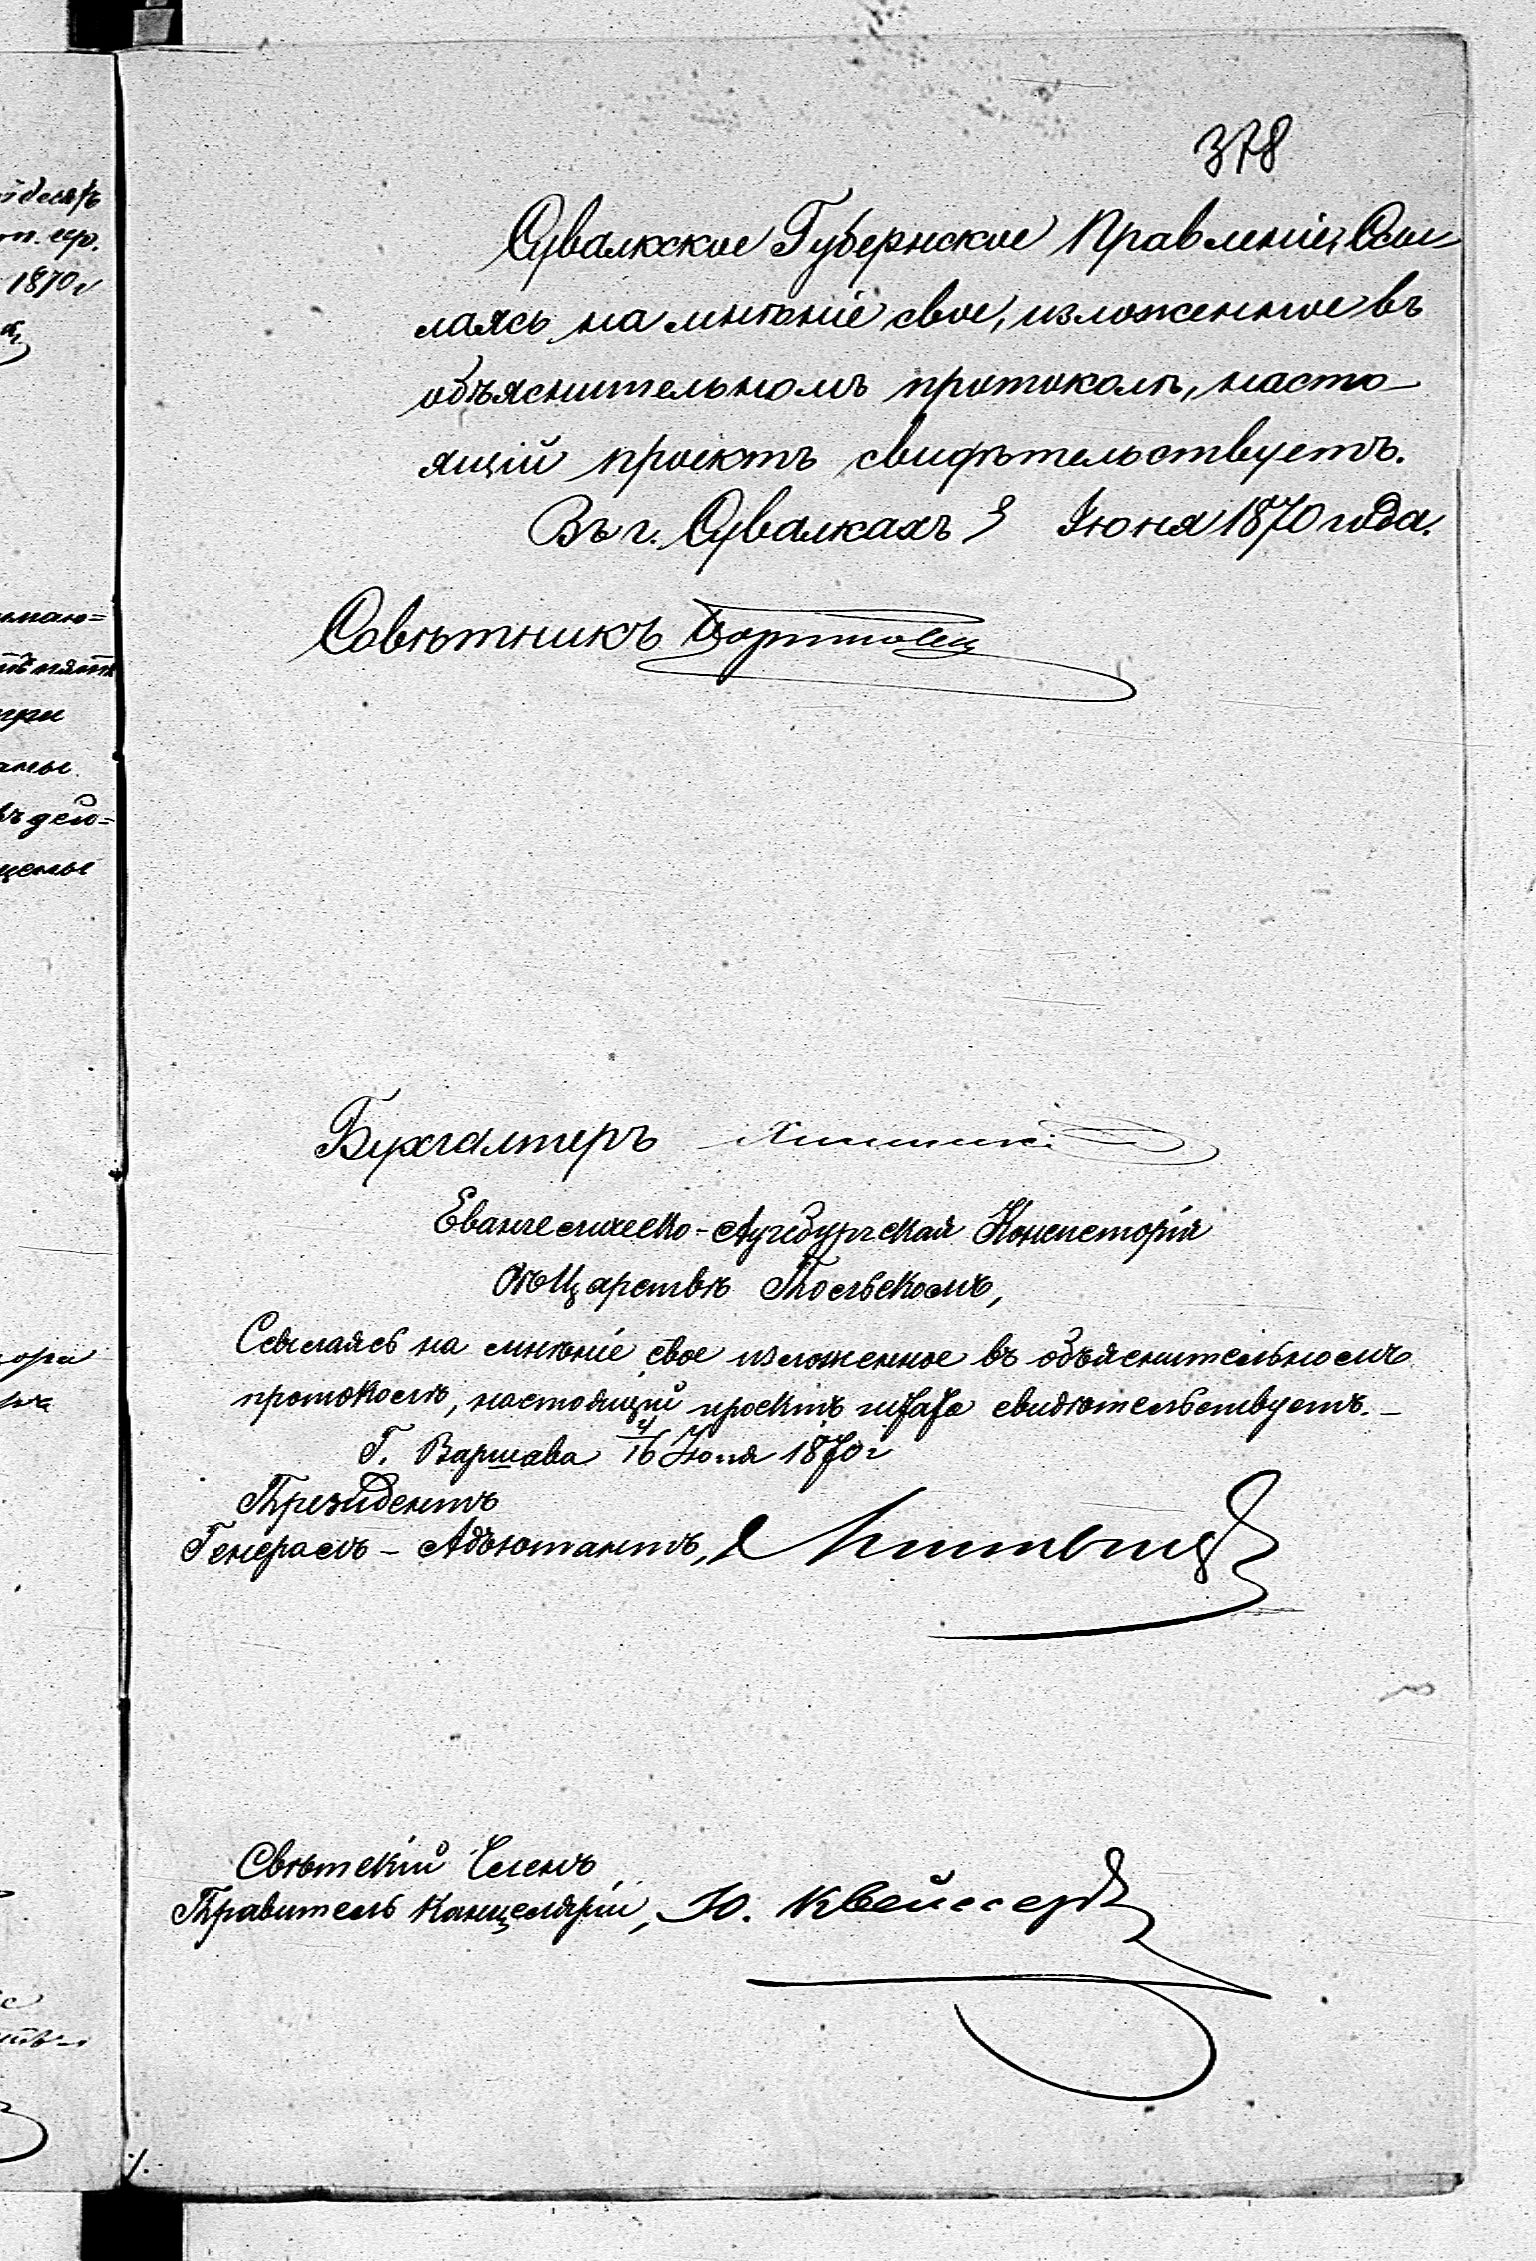 378
Сувалкское Губернское Правленіе, Ссы-
лаясь на мнѣніе свое, изложенное въ
объяснительномъ протоколѣ, насто-
ящій проектъ свидѣтельствуетъ.
Въ г. Сувалкахъ 3 Іюня 1870 года.
Совѣтникъ
Бухгалтеръ
Евангелическо-Аугсбургская Консисторія
въ Царствѣ Польскомъ,
Ссылаясь на мнѣніе свое изложенное въ объяснительномъ
протоколѣ, настоящій проектъ штата свидѣтельствуетъ.-
Г. Варшава 4/16 Іюля 1870 г
Президентъ
Генералъ-Адъютантъ,
Свѣтскій Членъ
Правитель Канцеляріи, Ю.
1870 г